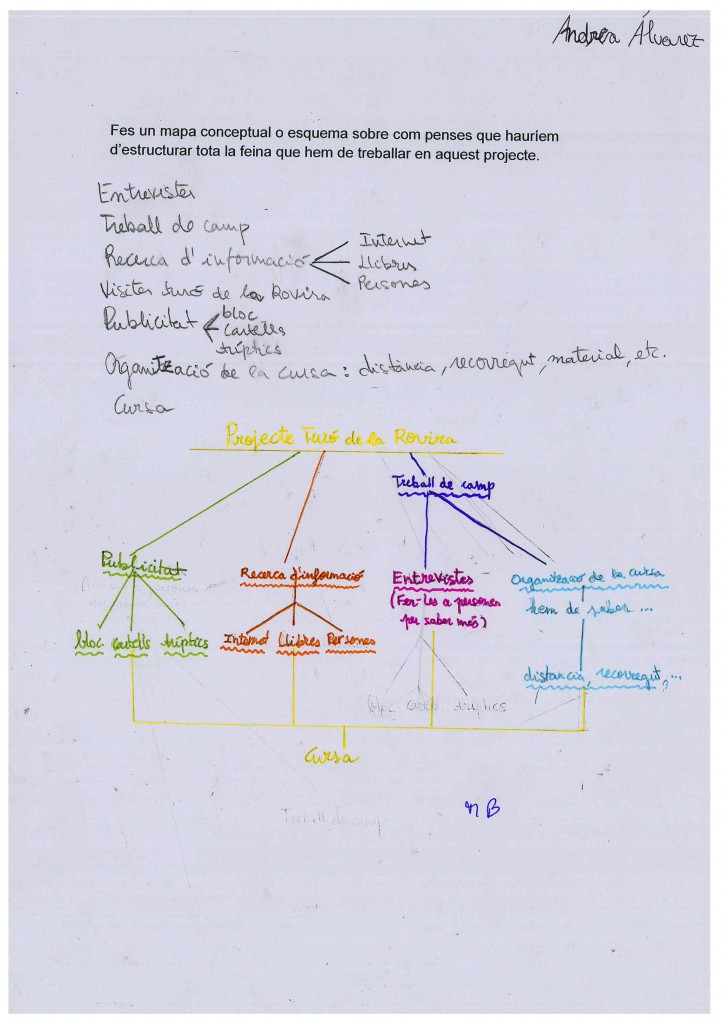 Andrea Álvarez
Fes un mapa conceptual o esquema sobre com penses que hauríem
d'estructurar tota la feina que hem de treballar en aquest projecte.
Entrevistes
Treball de camp
Recerca d'informació
Internet
Llibres
Persones
Visites turó de la Rovira
Publicitat
bloc
cartells
tríptics
Organització de la cursa: distància, recorregut, material, etc.
Cursa
Projecte Turó de la Rovira
Treball de camp
Publicitat
Recerca d'informació
Entrevistes
(Fer-les a persones
per saber més)
Organització de la cursa
hem de saber ...
bloc cartells tríptics
Internet Llibres Persones
distancia, recorregut, ...
bloc cartells tríptics
Cursa
Treball de camp